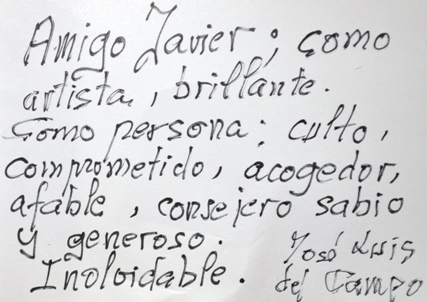 Amigo Javier; como
artista, brillante.
Como persona: culto,
comprometido, acogedor,
afable, consejero sabio
y generoso.
Inoloidable.
José Luis
del Campo